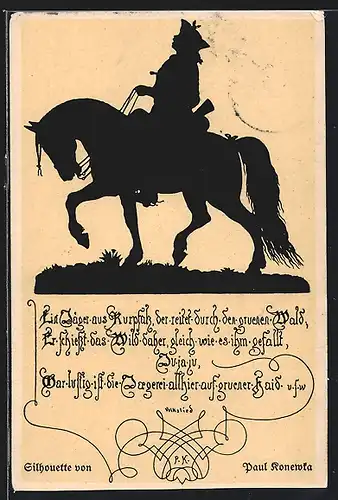 Ein Jäger aus Kurpfalz, der reitet durch den gruenen Wald,
Er schießt das Wild daher, gleich wie es ihm gefällt,
Ju-ja-ju,
Gar lustig ist die Jaegerei allhier auf gruener Haid u.s.w
Volkslied
P.K
Silhouette von Paul Konewka